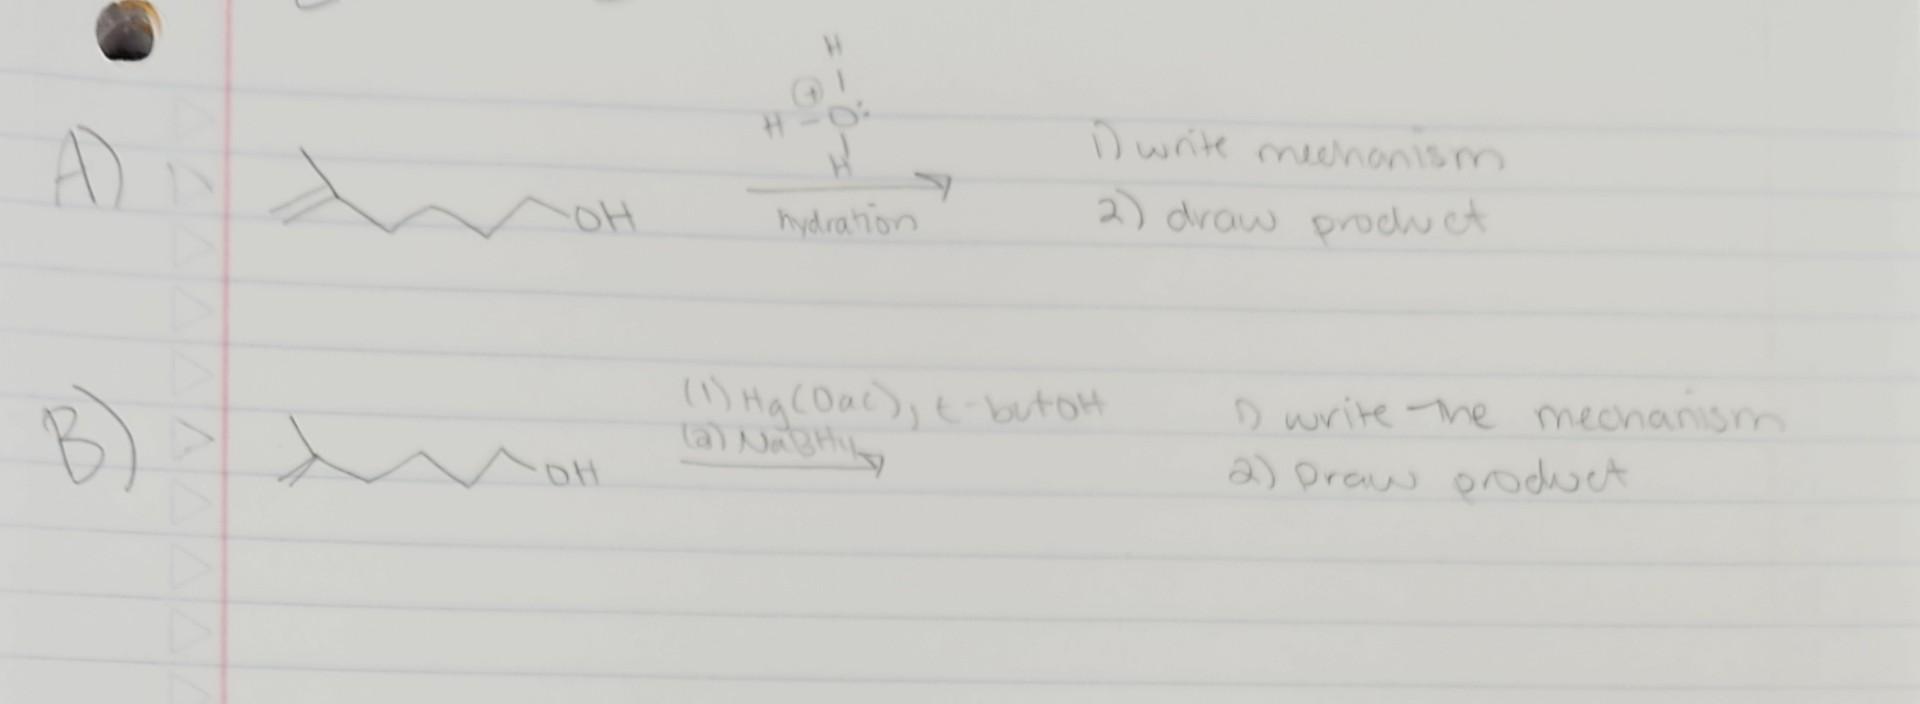 A)
H
⊕
H-O:
H
OH
hydration
1) write mechanism
2) draw product
B)
(1) Hg(Oac), t-butOH
(2) NaBH4
OH
1) write the mechanism
2) Draw product